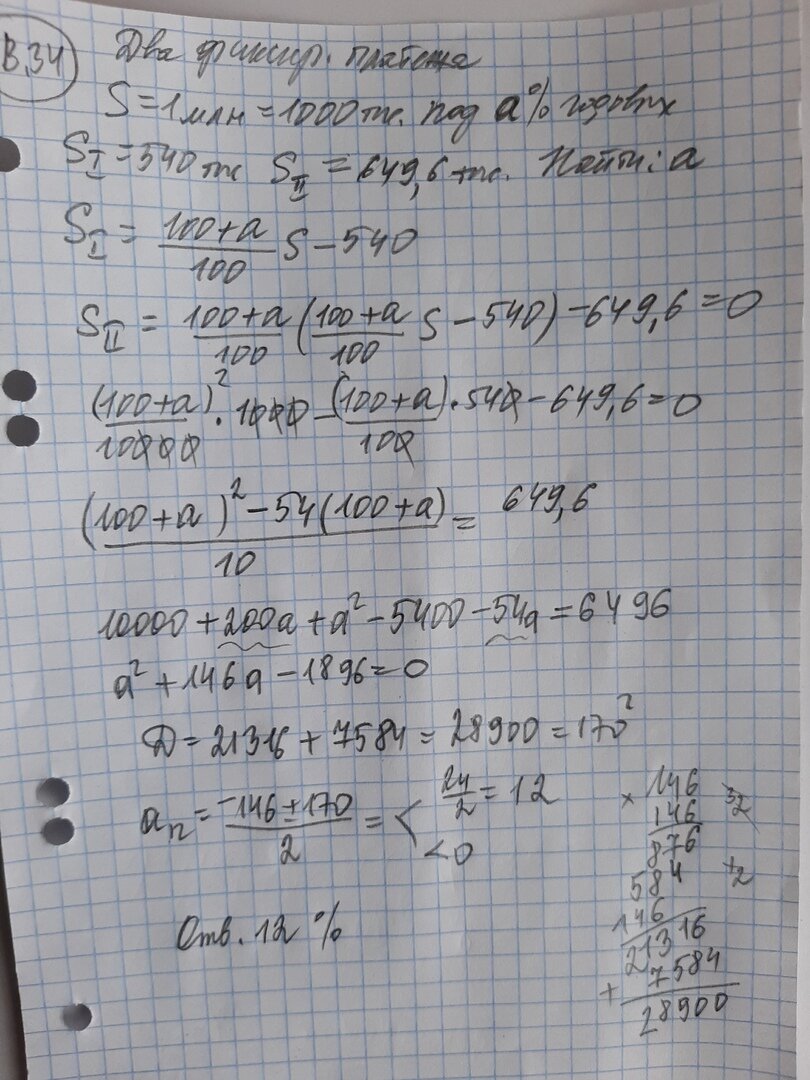 В.34
Два фиксир. платежа
S = 1 млн = 1000 тыс. под a% годовых
S_I = 540 тыс S_II = 649,6 тыс. Найти: a
S_I = (100+a)/100 S − 540
S_II = (100+a)/100 ((100+a)/100 S − 540) − 649,6 = 0
(100+a)²/10000 · 1000 − (100+a)/100 · 540 − 649,6 = 0
((100+a)² − 54(100+a))/10 = 649,6
10000 + 200a + a² − 5400 − 54a = 6496
a² + 146a − 1896 = 0
D = 21316 + 7584 = 28900 = 170²
a₁₂ = (−146 ± 170)/2 = < 24/2 = 12
< 0
Отв. 12 %
× 146
146
876
584
146
21316
+ 7584
28900